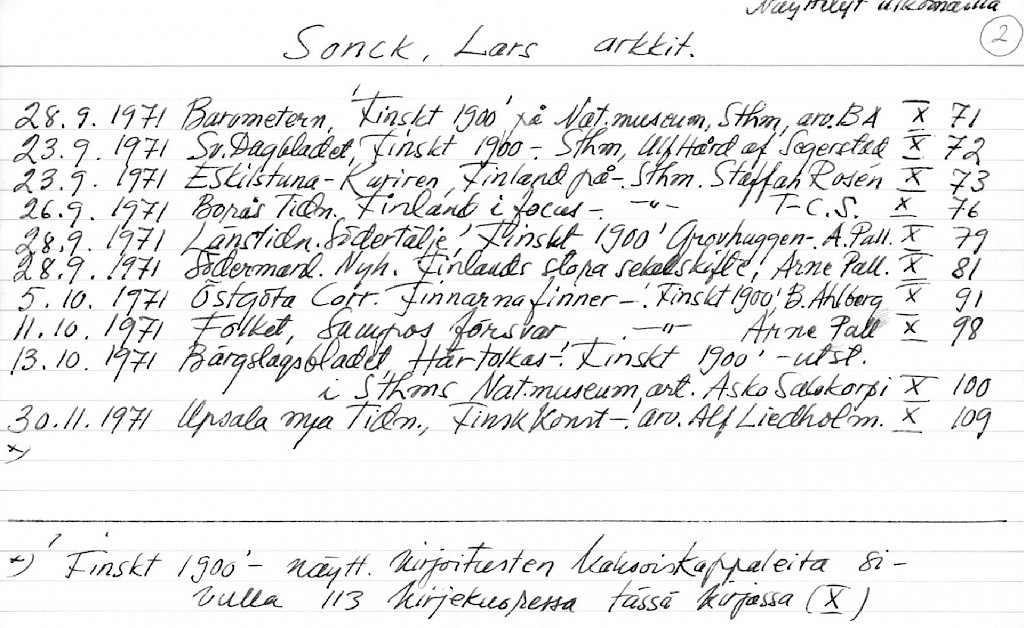 Näyttelyt ulkomailla
2
Sonck, Lars arkkit.
28.9.1971 Barometern, 'Finskt 1900' på Nat.museum, Sthm, arv. BA X 71
23.9.1971 Sv. Dagbladet, Finskt 1900 -. Sthm, Ulf Hård af Segerstad X 72
23.9.1971 Eskilstuna-Kuriren, Finland på -. Sthm. Staffan Rosén X 73
26.9.1971 Borås Tidn. Finland i focus -. -"- T-C.S. X 76
28.9.1971 Länstidn. Södertälje, 'Finskt 1900' Grovhuggen -. A.Pall. X 79
28.9.1971 Södermanl. Nyh. Finlands stora sekelskifte, Arne Pall. X 81
5.10.1971 Östgöta Corr. Finnarna finner -. 'Finskt 1900', B. Ahlberg X 91
11.10.1971 Folket, Sampos försvar. -"- Arne Pall X 98
13.10.1971 Bärgslagsbladet, Här tolkas -. 'Finskt 1900' - utst.
i Sthms Nat.museum, art. Asko Salokorpi X 100
30.11.1971 Upsala nya Tidn., Finsk Konst -. arv. Alf Liedholm. X 109
x)
x) 'Finskt 1900' - näytt. kirjoitusten kaksoiskappaleita si-
vulla 113 kirjekuoressa tässä kirjassa (X)